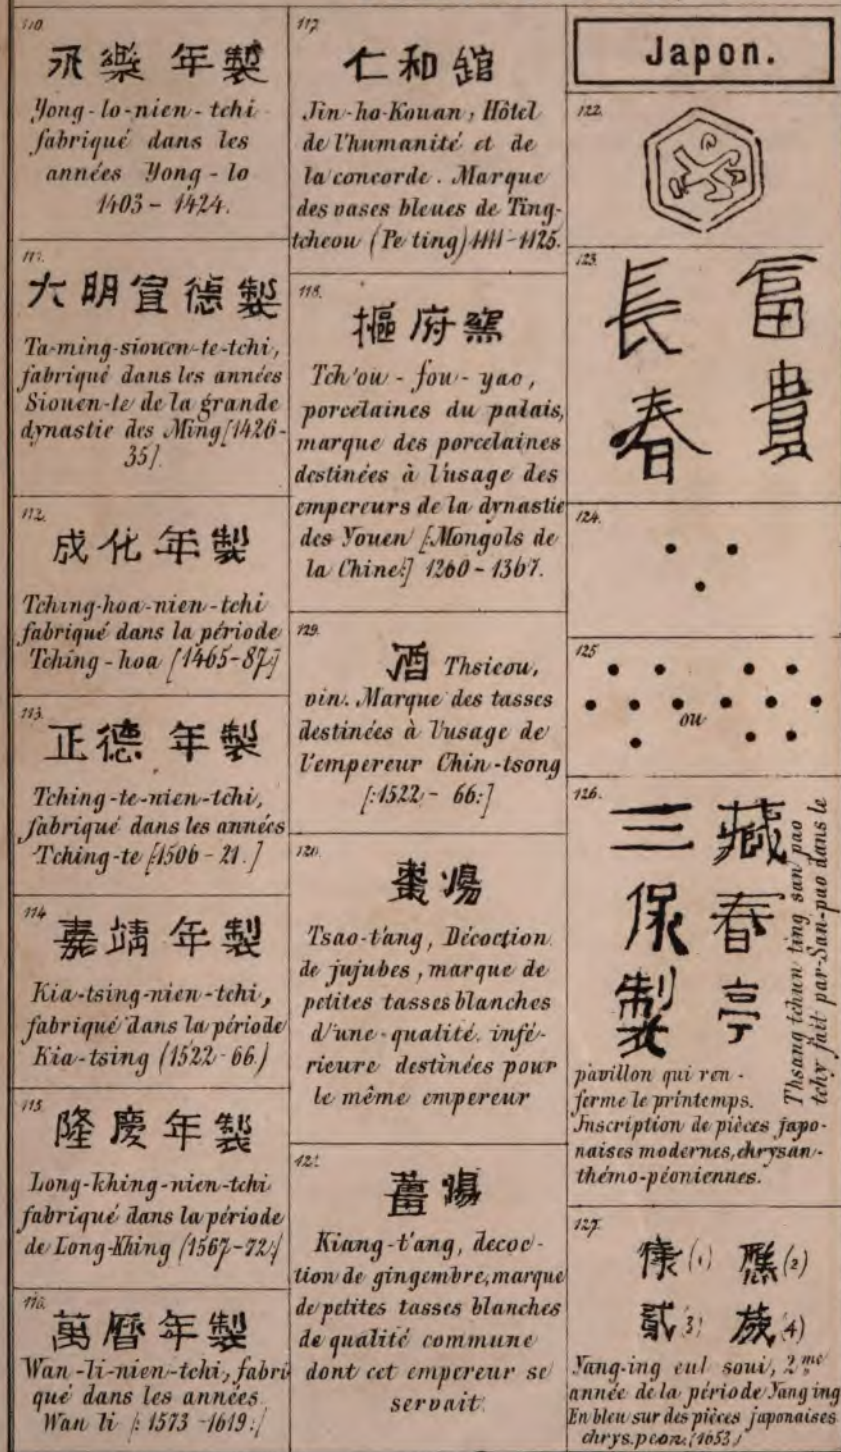 110.
永樂年製
Yong-lo-nien-tchi
fabriqué dans les
années Yong-lo
1403 - 1424.
111.
大明宣德製
Ta-ming-siouen-te-tchi,
fabriqué dans les années
Siouen-te de la grande
dynastie des Ming [1426-
35].
112.
成化年製
Tching-hoa-nien-tchi
fabriqué dans la période
Tching-hoa [1465-87]
113.
正德年製
Tching-te-nien-tchi,
fabriqué dans les années
Tching-te [1506-21.]
114
嘉靖年製
Kia-tsing-nien-tchi,
fabriqué dans la période
Kia-tsing (1522-66.)
115
隆慶年製
Long-khing-nien-tchi
fabriqué dans la période
de Long-Khing (1567-72)
116.
萬曆年製
Wan-li-nien-tchi, fabri
qué dans les années
Wan li [: 1573-1619:]
117
仁和舘
Jin-ho-Kouan, Hôtel
de l'humanité et de
la concorde. Marque
des vases bleues de Ting-
tcheou (Pe ting) 1111-1125.
118.
樞府窯
Tch'ou-fou-yao,
porcelaines du palais,
marque des porcelaines
destinées à l'usage des
empereurs de la dynastie
des Youen [Mongols de
la Chine:] 1260-1367.
129.
酒 Thsieou,
vin. Marque des tasses
destinées à l'usage de
l'empereur Chin-tsong
[:1522-66:]
120.
棗湯
Tsao-t'ang, Décoction
de jujubes, marque de
petites tasses blanches
d'une qualité infé-
rieure destinées pour
le même empereur
121.
薑湯
Kiang-t'ang, decoc-
tion de gingembre, marque
de petites tasses blanches
de qualité commune
dont cet empereur se
servait.
Japon.
122.
123.
富貴
長春
124.
125
ou
126.
藏春亭
三保製
Thsang tchun ting san pao
tchy fait par San-pao dans le
pavillon qui ren-
ferme le printemps.
Inscription de pièces japo-
naises modernes, chrysan-
thémo-péoniennes.
127.
(1) (2)
貳(3) (4)
Yang-ing eul soui, 2me
année de la période Yang ing
En bleu sur des pièces japonaises
chrys. peon. (1653)